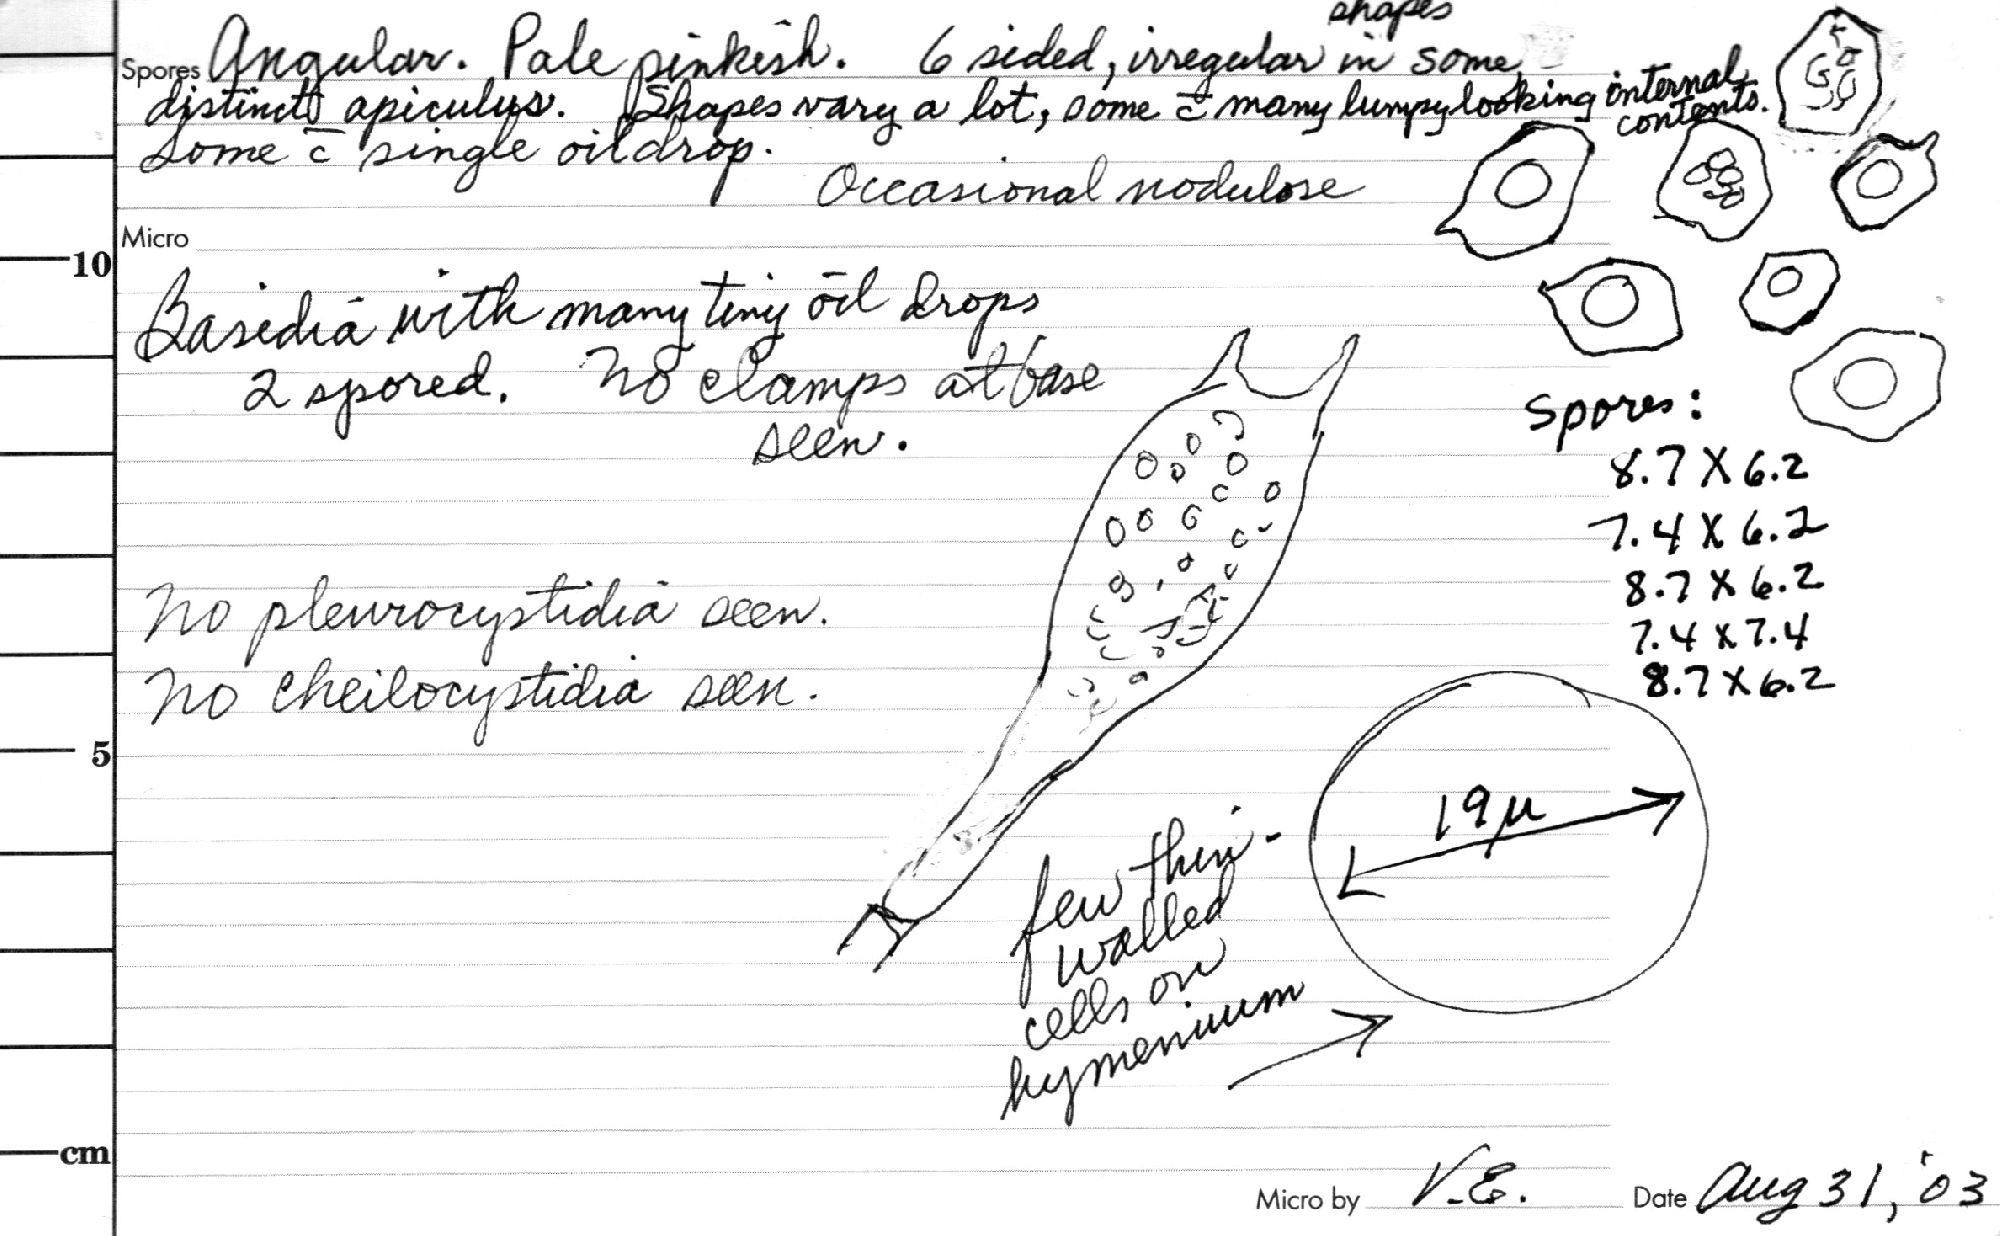 shapes
Spores Angular. Pale pinkish. 6 sided, irregular in some,
distinct apiculus. Shapes vary a lot, some c̄ many lumpy looking internal contents.
some c̄ single oil drop.
Occasional nodulose
Micro
10
Basidia with many tiny oil drops
2 spored. No clamps at base
seen.
Spores:
8.7 X 6.2
7.4 X 6.2
8.7 X 6.2
7.4 X 7.4
8.7 X 6.2
No pleurocystidia seen.
No cheilocystidia seen.
5
19µ
few thin-
walled
cells on
hymenium
cm
Micro by V.E. Date Aug 31, '03